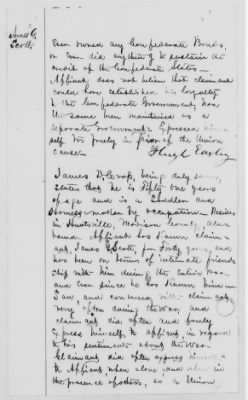 James G.
Scott
Ever owned any Confederate Bonds,
or Ever did anything to sustain the
credit of the Confederate States—
Affiant does not believe that claimant
could have established his loyalty
to the Confederate Government, had
the same been maintained as a
separate Government. Expressed him
self too freely in favor of the Union
cause—
Hugh
James being duly sworn,
states that he is Fifty one years
of age and is a Saddler and
Harness-maker by occupation— Resides
in Huntsville, Madison County, Ala-
bama. Affiant has known claim-
ant, James G. Scott, for Forty years, and
has been on terms of intimate friend-
ship with him during the entire War
and Ever since he has known him—
Saw, and conversed with claimant
very often during the War, and
claimant did often and freely
Express himself, to affiant, in regard
to his sentiments about the War.
Claimant did often express himself
to Affiant when alone, and when in
the presence of others, as a Union